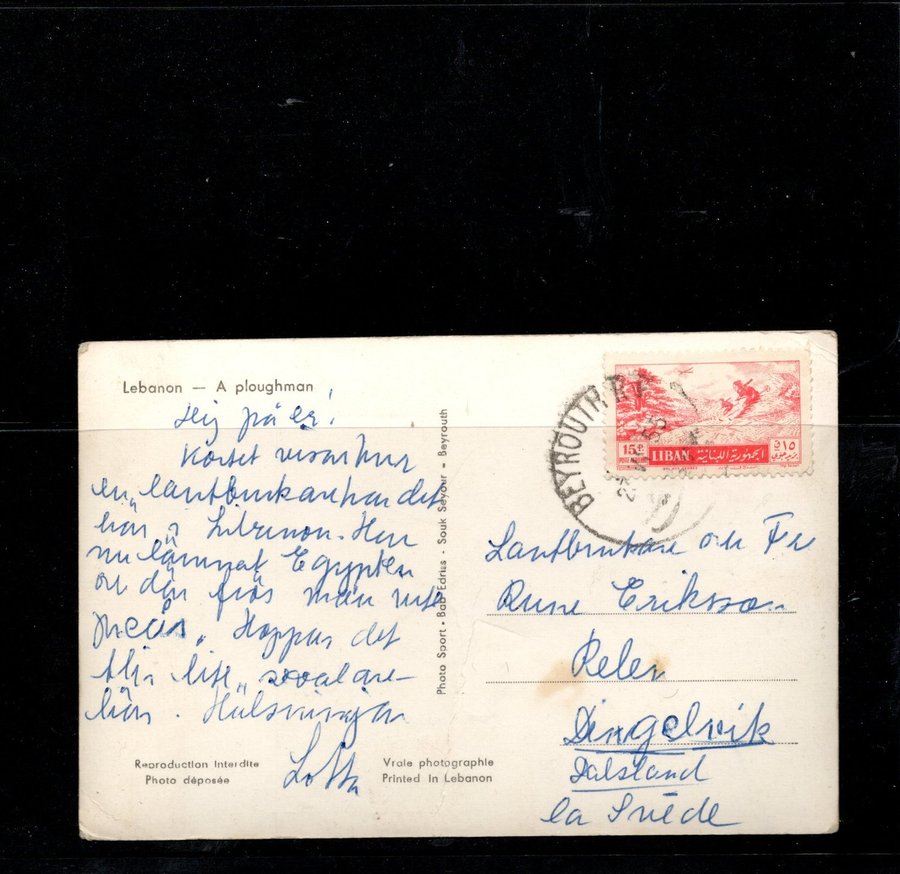 Lebanon — A ploughman
Hej på er!
Kortet visar hur
en lantbrukare har det
här i Libanon. Har
nu lämnat Egypten
och där frös man inte
Hoppas det
blir lite svalare
här. Hälsningar
Lotta
Reproduction Interdite
Photo déposée
Vraie photographie
Printed in Lebanon
Photo Sport - Bab Edriss - Souk Seyour - Beyrouth
BEYROUTH R.P.
15 P
LIBAN الجمهورية اللبنانية
١٥
Lantbrukare och Fru
Rune Eriksson
Dingelvik
Dalsland
la Suède